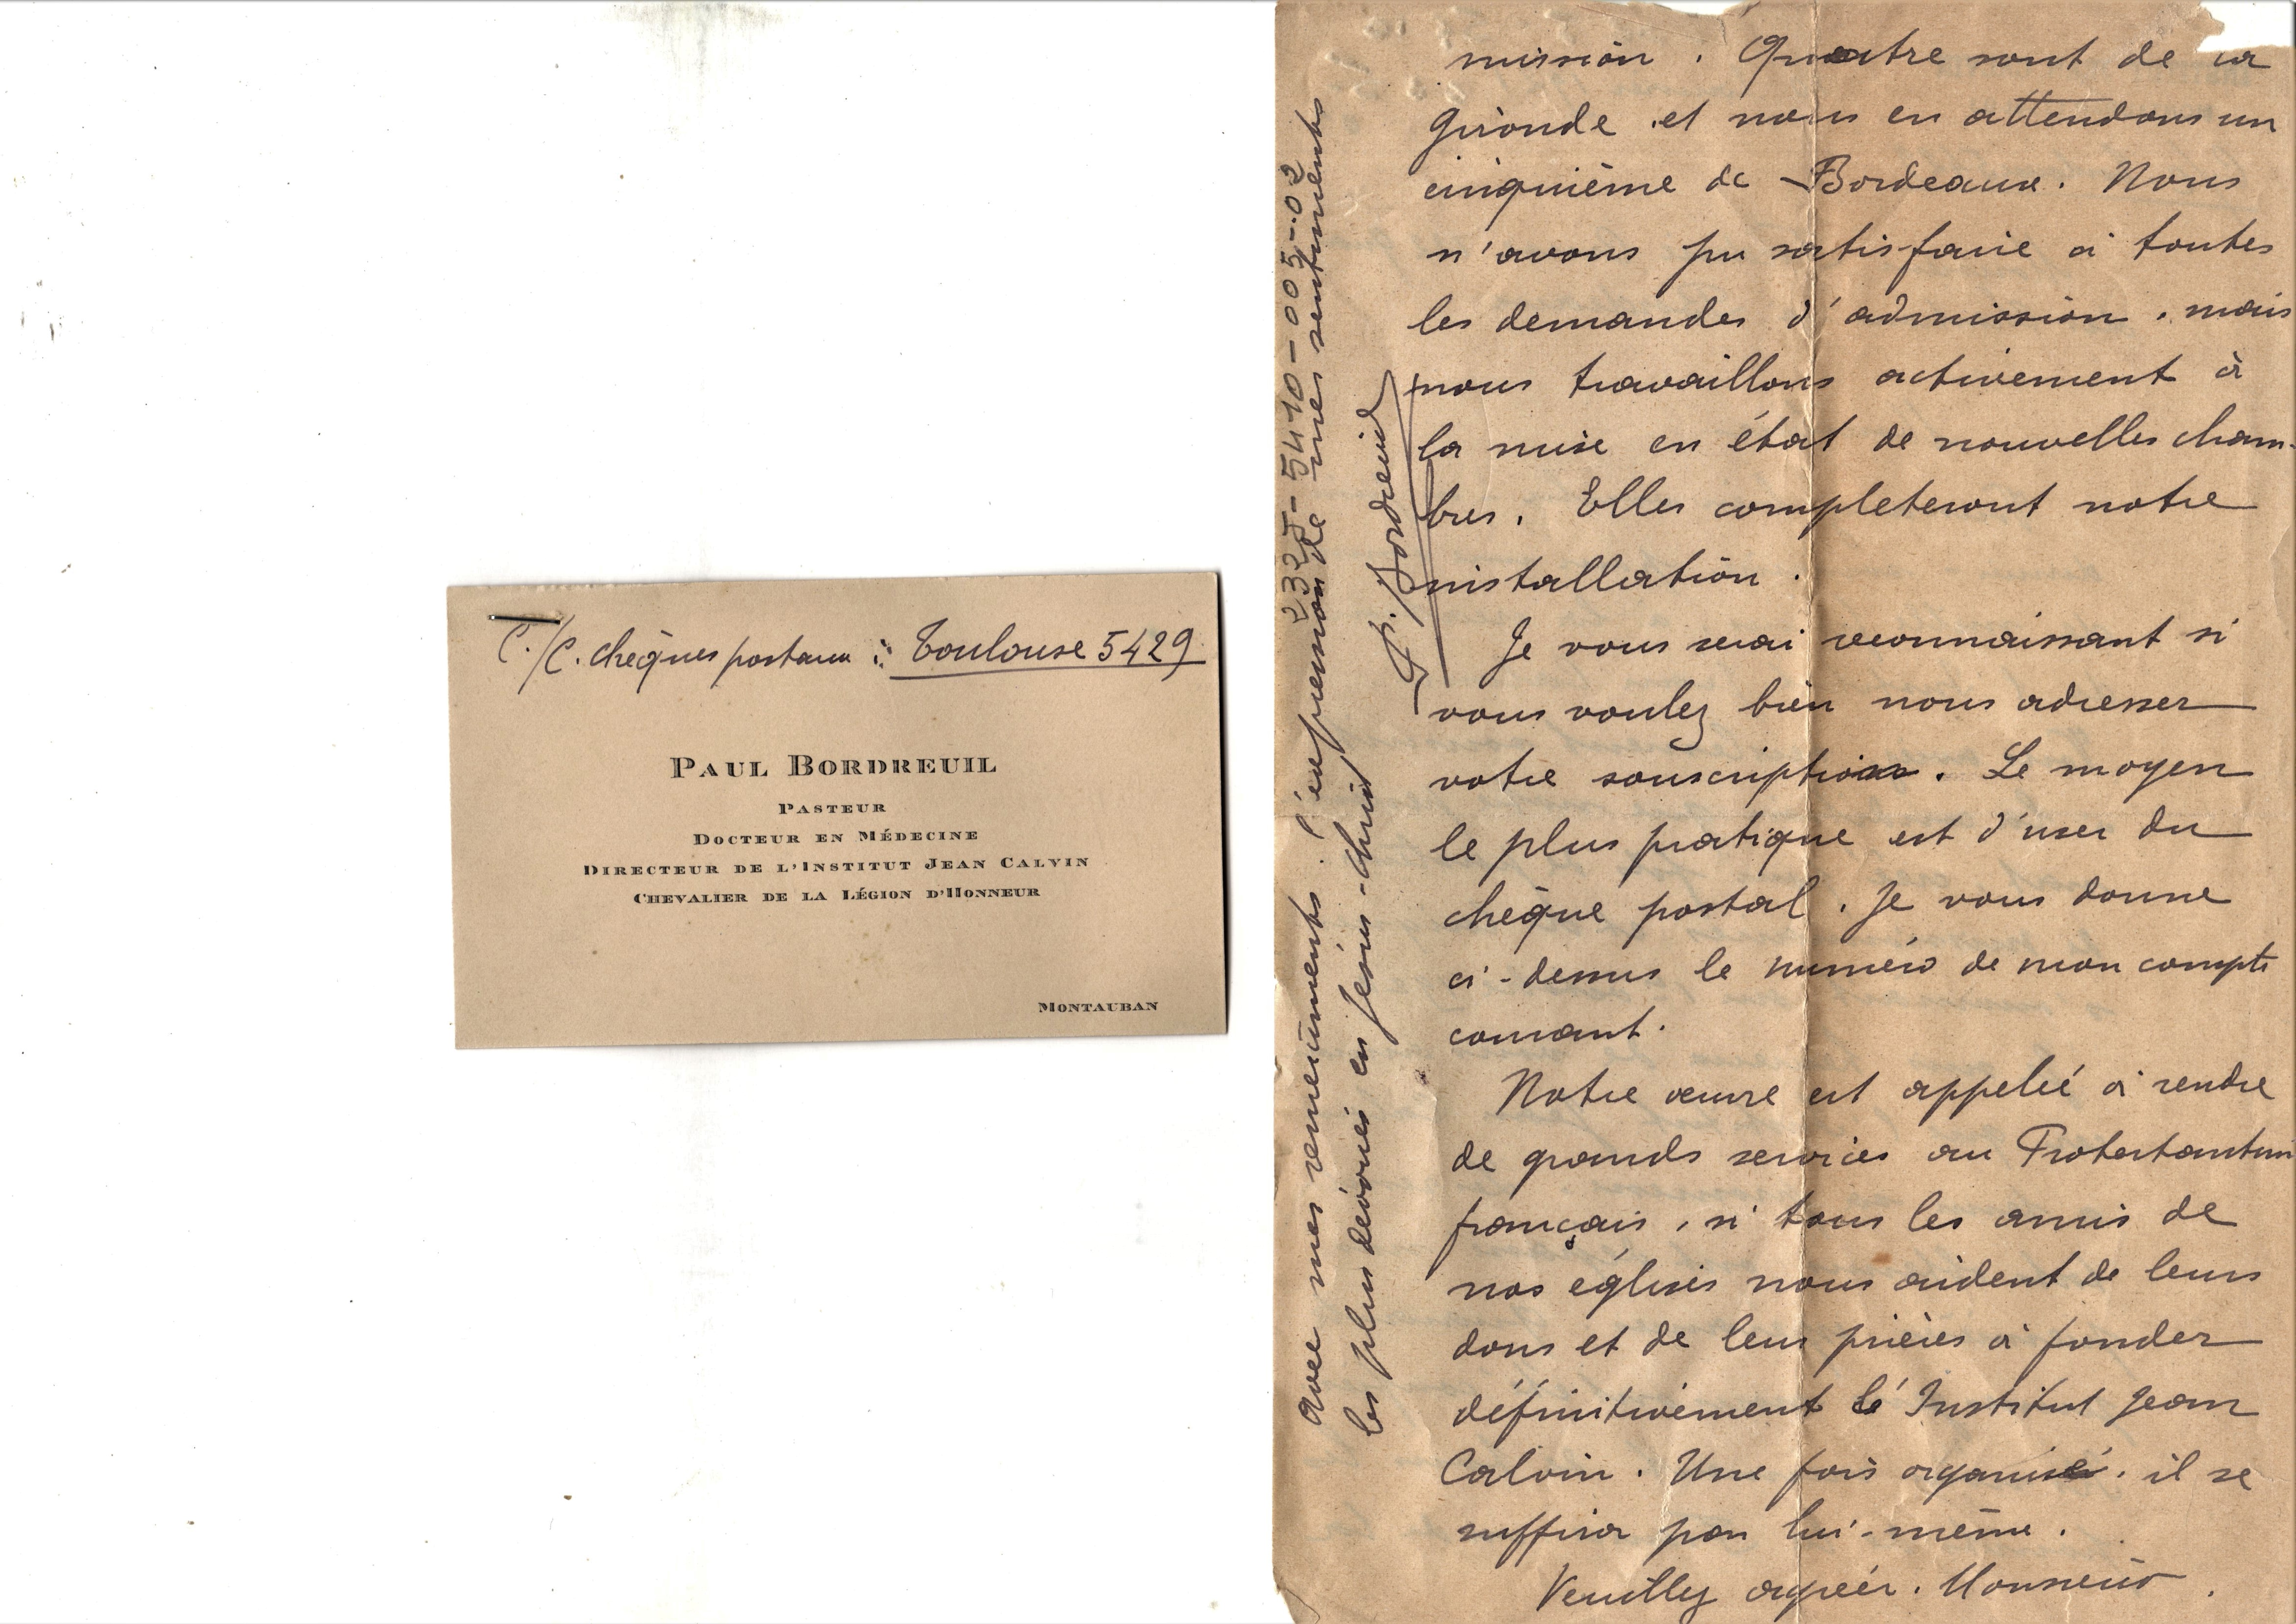 C./C. chèques postaux : Toulouse 5429
PAUL BORDREUIL
PASTEUR
DOCTEUR EN MÉDECINE
DIRECTEUR DE L'INSTITUT JEAN CALVIN
CHEVALIER DE LA LÉGION D'HONNEUR
MONTAUBAN
mission. Quatre sont de la
Gironde et nous en attendons un
cinquième de Bordeaux. Nous
n'avons pu satisfaire à toutes
les demandes d'admission, mais
nous travaillons activement à
la mise en état de nouvelles cham-
bres. Elles completeront notre
installation.
Je vous serai reconnaissant si
vous voulez bien nous adresser
votre souscription. Le moyen
le plus pratique est d'user du
chèque postal. Je vous donne
ci-dessus le numéro de mon compte
courant.
Notre œuvre est appelée à rendre
de grands services au Protestantism
français, si tous les amis de
nos églises nous aident de leurs
dons et de leurs prières à fonder
définitivement l'Institut Jean
Calvin. Une fois organisé, il se
suffira par lui-même.
Veuillez agréer, Monsieur,
avec mes remerciements, l'expression de mes sentiments
les plus dévoués en Jésus-Christ
P. Bordreuil
232J-5410-005-02